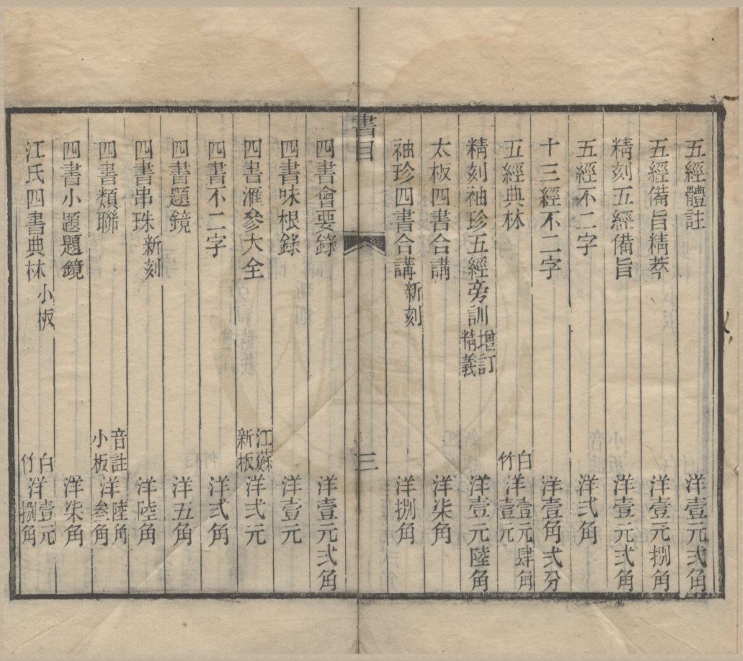 五經體註 洋壹元弍角
五經備旨精萃 洋壹元捌角
精刻五經備旨 洋壹元弍角
五經不二字 洋弍角
十三經不二字 洋壹角弍分
五經典林 白 洋壹元肆角 竹 洋壹元
精刻袖珍五經旁訓 增訂精義 洋壹元陸角
太板四書合講 洋柒角
袖珍四書合講 新刻 洋捌角
書目 三
四書會要錄 洋壹元弍角
四書味根錄 洋壹元
四書滙參大全 江蘇新板 洋弍元
四書不二字 洋弍角
四書題鏡 洋五角
四書串珠 新刻 洋陸角
四書類聯 音註 洋陸角 小板 洋叄角
四書小題題鏡 洋柒角
江氏四書典林 小板 白 洋壹元 竹 洋捌角